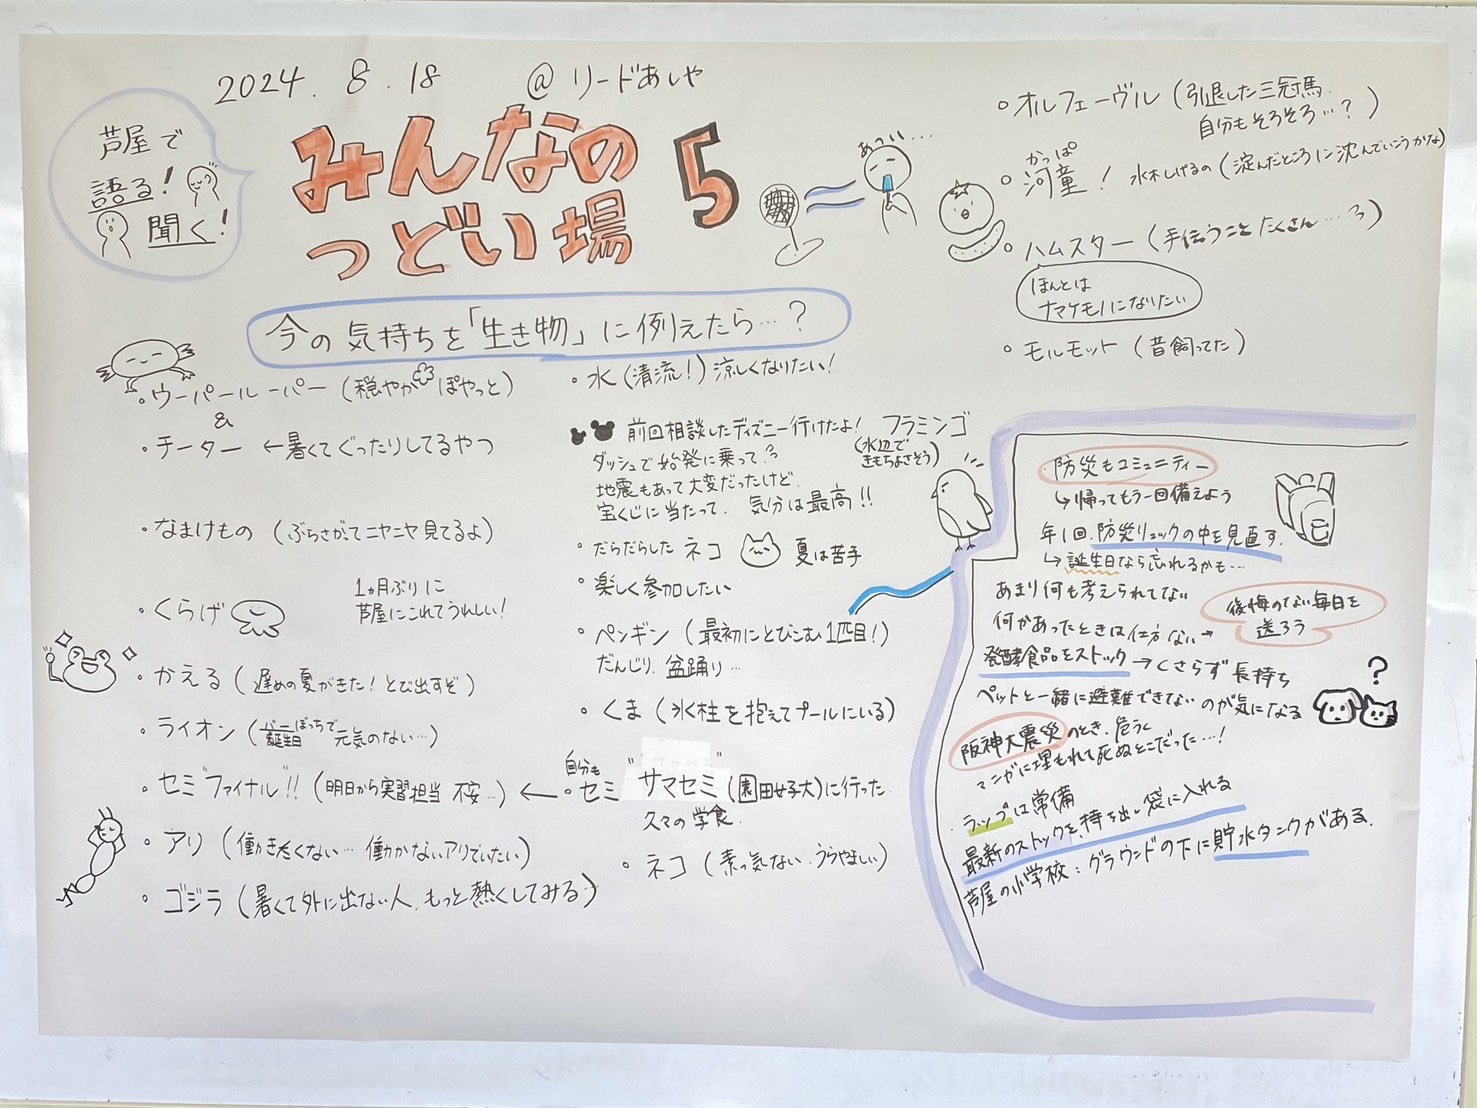 2024. 8. 18 @ リードあしや
芦屋で
語る!
聞く!
みんなの
つどい場
5
あつい...
今の気持ちを「生き物」に例えたら…?
・ウーパールーパー (穏やか ぽやっと)
&
・チーター ←暑くてぐったりしてるやつ
・なまけもの (ぶらさがってニヤニヤ見てるよ)
・くらげ
1ヵ月ぶりに
芦屋にこれてうれしい!
・かえる (遅めの夏がきた! とび出すぞ)
・ライオン (誕生日ぼっちで元気のない…)
・セミ"ファイナル"!! (明日から実習担当 不安…) ←
・アリ (働きたくない… 働かないアリでいたい)
・ゴジラ (暑くて外に出ない人、もっと熱くしてみる)
・水 (清流!) 涼しくなりたい!
前回相談したディズニー行けたよ!
ダッシュで始発に乗って?
地震もあって大変だったけど、
宝くじに当たって、気分は最高!!
フラミンゴ
(水辺で
きもちよさそう)
・だらだらした ネコ 夏は苦手
・楽しく参加したい
・ペンギン (最初にとびこむ1匹目!)
だんじり、盆踊り…
・くま (氷柱を抱えてプールにいる)
自分も
・セミ "サマセミ" (園田女子大)に行った
久々の学食
・ネコ (素っ気ない、うらやましい)
・オルフェーヴル (引退した三冠馬、
自分もそろそろ…?)
かっぱ
・河童! 水木しげるの (淀んだところに沈んでいこうかな)
・ハムスター (手伝うことたくさん…)
ほんとは
ナマケモノになりたい
・モルモット (昔飼ってた)
防災もコミュニティー
↳帰ってもう一回備えよう
年1回、防災リュックの中を見直す。
↳誕生日なら忘れるかも…
あまり何も考えられてない
何かあったときは仕方ない→
後悔のない毎日を
送ろう
発酵食品をストック→くさらず長持ち
ペットと一緒に避難できないのが気になる
?
阪神大震災のとき、危うく
マンガに埋もれて死ぬとこだった…!
・ラップは常備
最新のストックを、持ち出し袋に入れる
芦屋の小学校:グラウンドの下に貯水タンクがある。